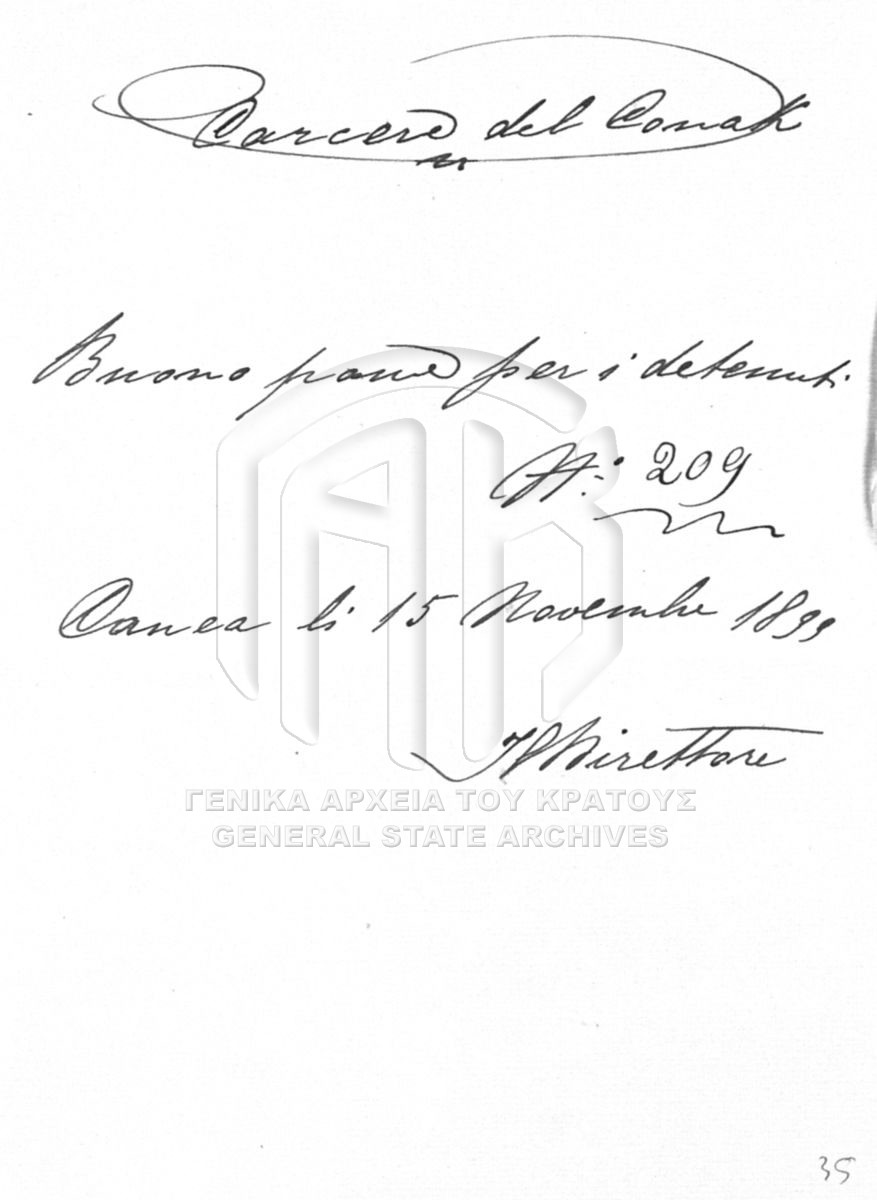 Carcere del Conak
Buono pane per i detenuti
N: 209
Canea li 15 Novembre 1899
Il Direttore
ΓΕΝΙΚΑ ΑΡΧΕΙΑ ΤΟΥ ΚΡΑΤΟΥΣ
GENERAL STATE ARCHIVES
35